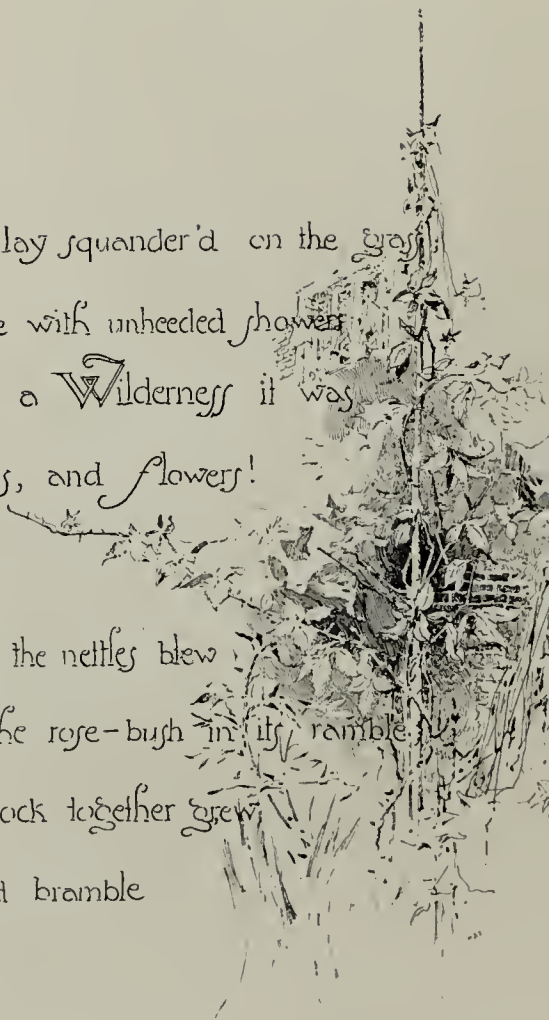 lay squander'd on the grass
with unheeded showers
a Wilderness it was
and flowers!
the nettles blew
rose-bush in its ramble
together grew,
bramble